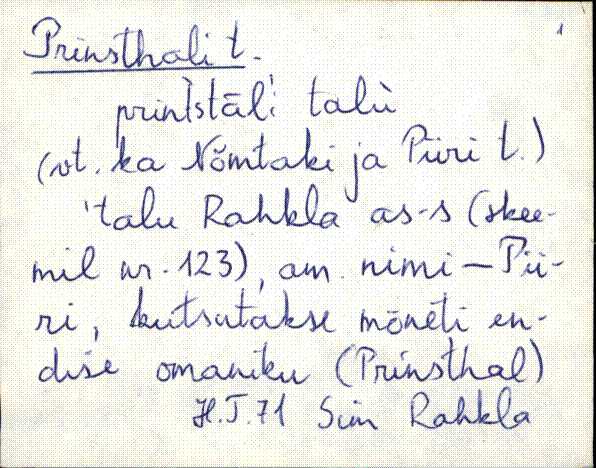 1
Prinsthali t.
prinlstāl'i talù
(vt. ka Nõmtaki ja Piiri t.)
'talu Rahkla as-s (skee-
mil nr. 123), am. nimi - Pii-
ri, kutsutakse mõnèti en-
dise omaniku (Prinsthal)
H.T.71 Sim Rahkla